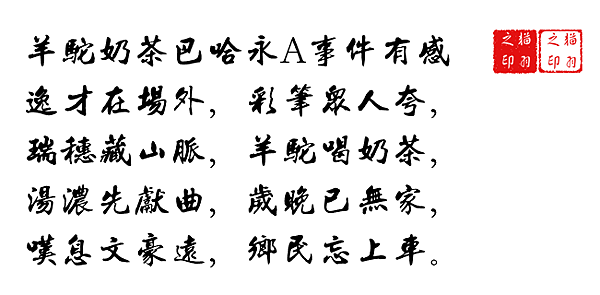 羊駝奶茶巴哈永A事件有感
逸才在場外，彩筆眾人夸，
瑞穗藏山脈，羊駝喝奶茶，
湯濃先獻曲，歲晚已無家，
嘆息文豪遠，鄉民忘上車。
貓羽之印